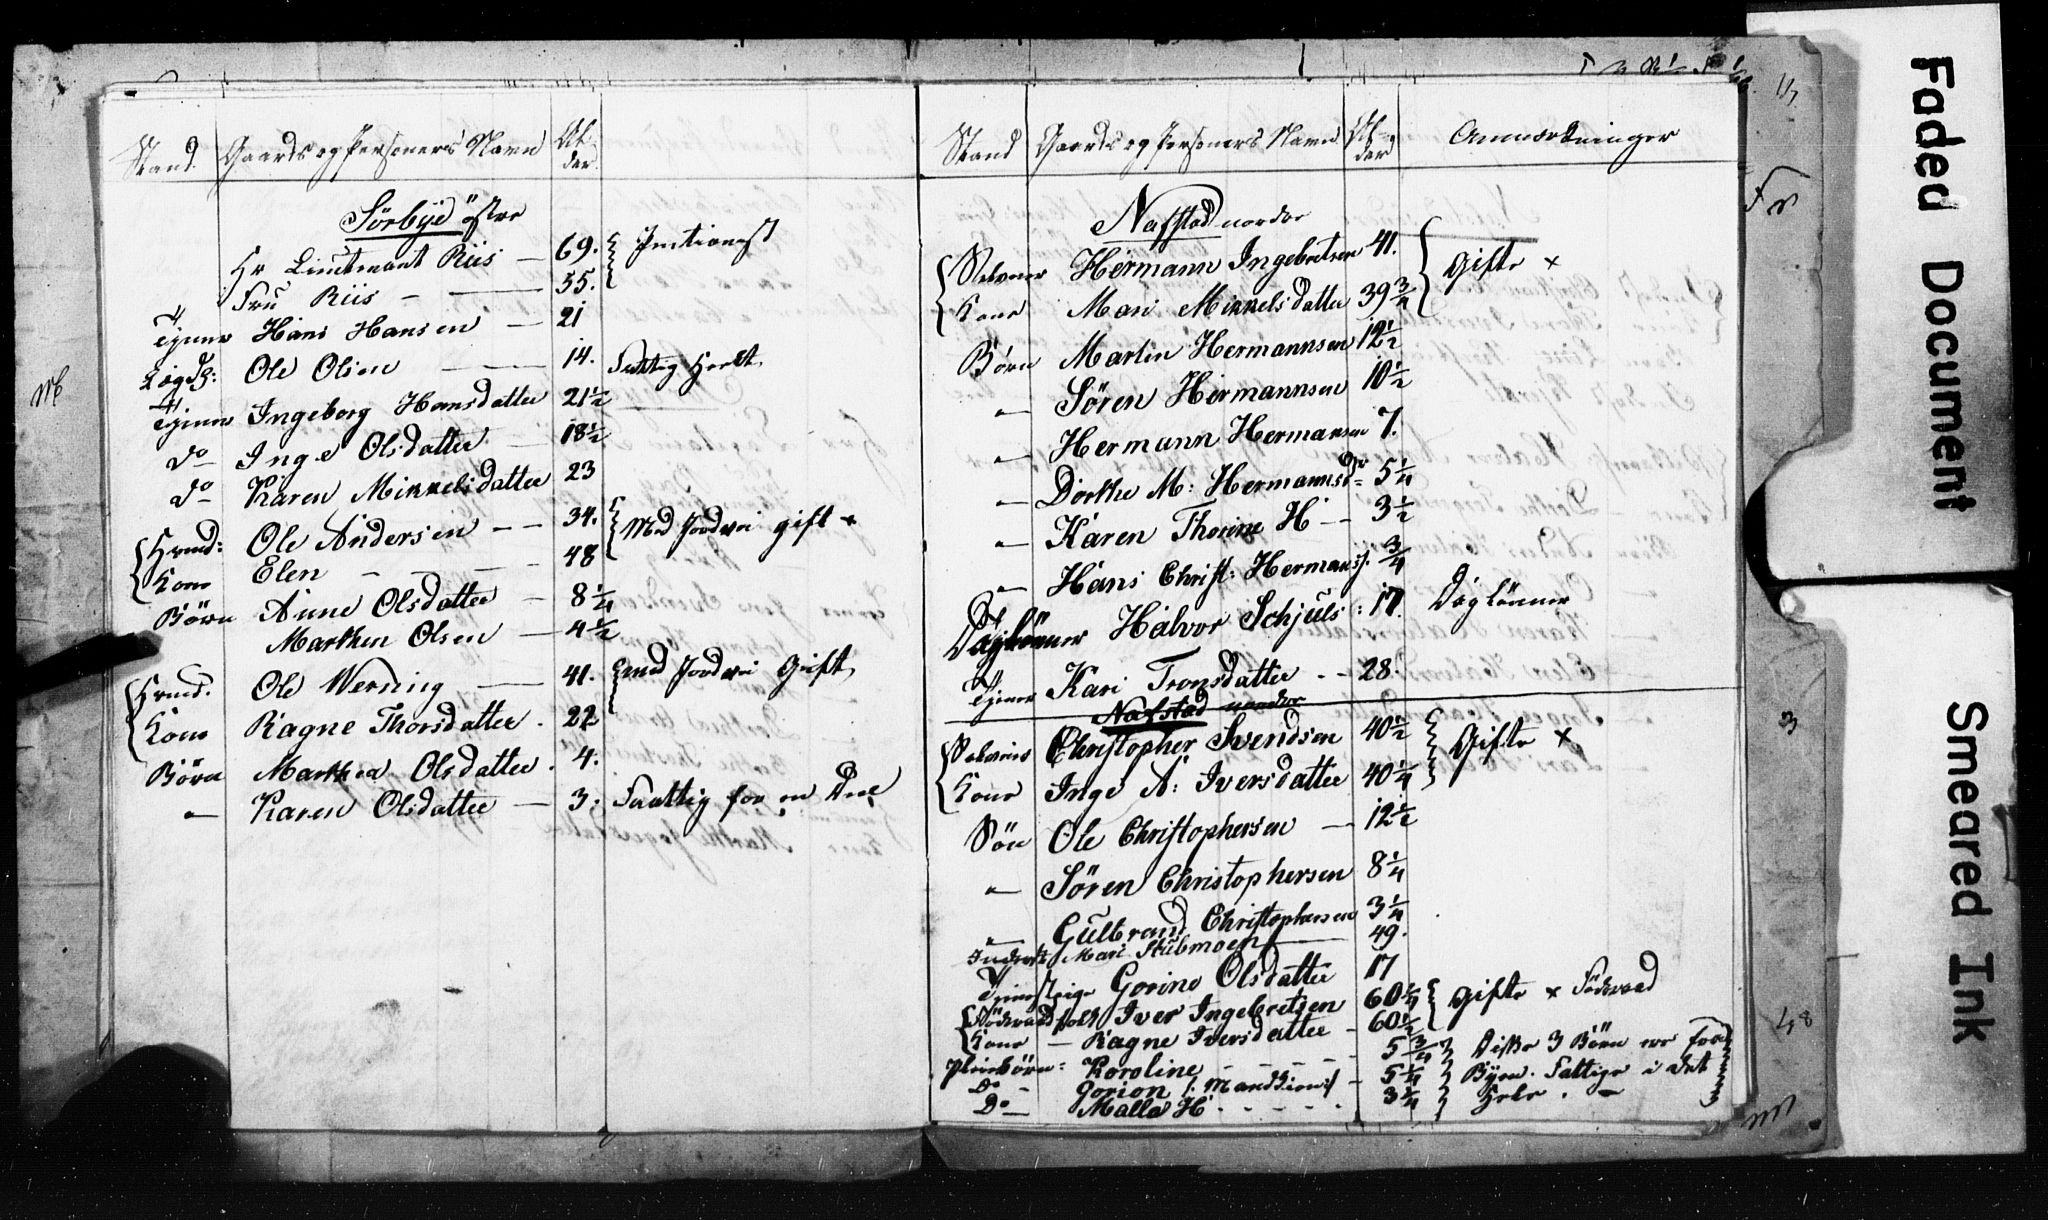 Stand. Gaards og Personers Navn Al-
der.
Sörbye östre
Hr Lieutenant Riis — 69. Pentionest
Fru Riis — 55.
Tjener Hans Hansen — 21
Lægds: Ole Olsen — 14. Fattig heelt
Tjener Ingeborg Hansdatter 21½
Do Inge Olsdatter — 18½
Do Karen Mikkelsdatter 23
Huusm: Ole Andersen — 34. Med Jordvei gift ×
Kone Elen — 48
Börn Anne Olsdatter — 8¼
Marthen Olsen — 4½
Huusm. Ole Werning — 41. med Jordvei Gift
Kone Ragne Thorsdatter . 22
Börn Marthea Olsdatter . 4.
— Karen Olsdatter — 3. Fattig for en Deel
Stand Gaards og Personers Navn Al-
der Anmærkninger
Nafstad nordre
Selveier Hermann Ingebretsen 41. Gifte ×
Kone Mari Mikkelsdatter 39¾
Börn Martin Hermannsen 12½
— Sören Hermannsen 10½
— Hermann Hermansen 7.
— Dorthe M: Hermannsdr 5¼
— Karen Thorine H — 3½
— Hans Christ: Hermans. ¾
Daglönner Halvor Schjuls: 17. Daglönner
Tjener Kari Tronsdatter — 28.
Nafstad nordre
Selveier Christopher Svendsen 40½ Gifte ×
Kone Inge A: Iversdatter 40¼
Sön Ole Christophersen — 12½
— Sören Christophersen 8¼
— Gulbrand Christophersen 3¼
Inderste Mari Stubmoen — 49.
Tjenestpige Gorine Olsdatter 17
Föderaadfolk Iver Ingebretsen 60¼ Gifte × Föderaad
Kone — Ragne Iversdatter — 60½
Pleiebörn: Karoline — 5¾ Disse 3 Börn ere fra
Do — Gorion — 5¼ Byen. Fattige i det
Do — Malla H — 3¼ Hele. —
Faded Document
Smeared Ink